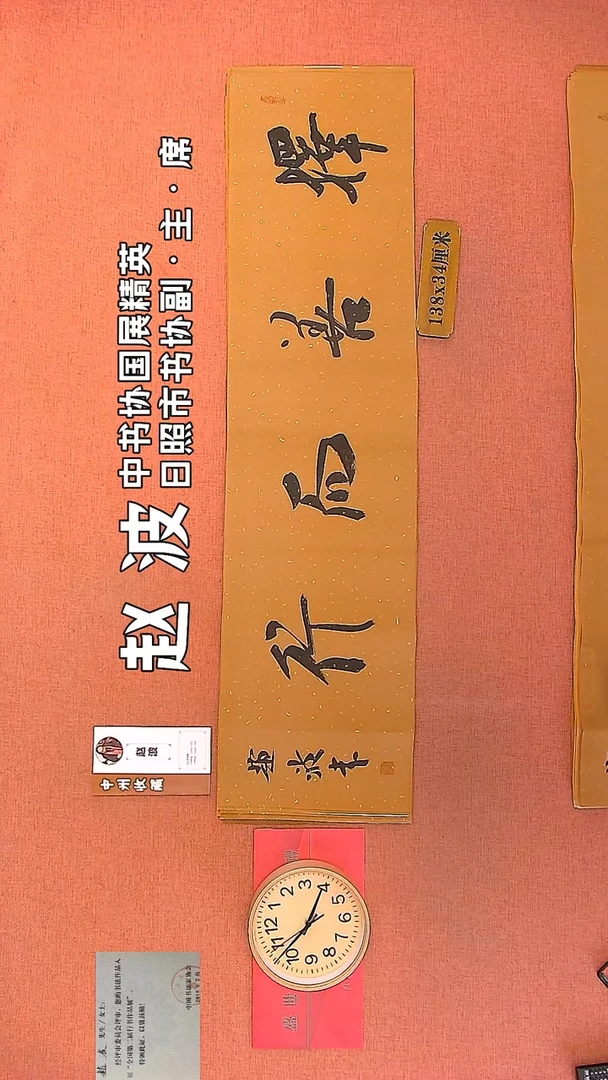 赵波
中书协国展精英
日照市书协副·主·席
擇善而行
趙波书
138x34厘米
赵波
中州收藏
12
1
2
3
4
5
6
7
8
9
10
11
盛世
赵波 先生/女士:
经评审委员会评审,您的书法作品入
展“全国第二届行书作品展”,
特颁此证,以资鼓励!
中国书法家协会